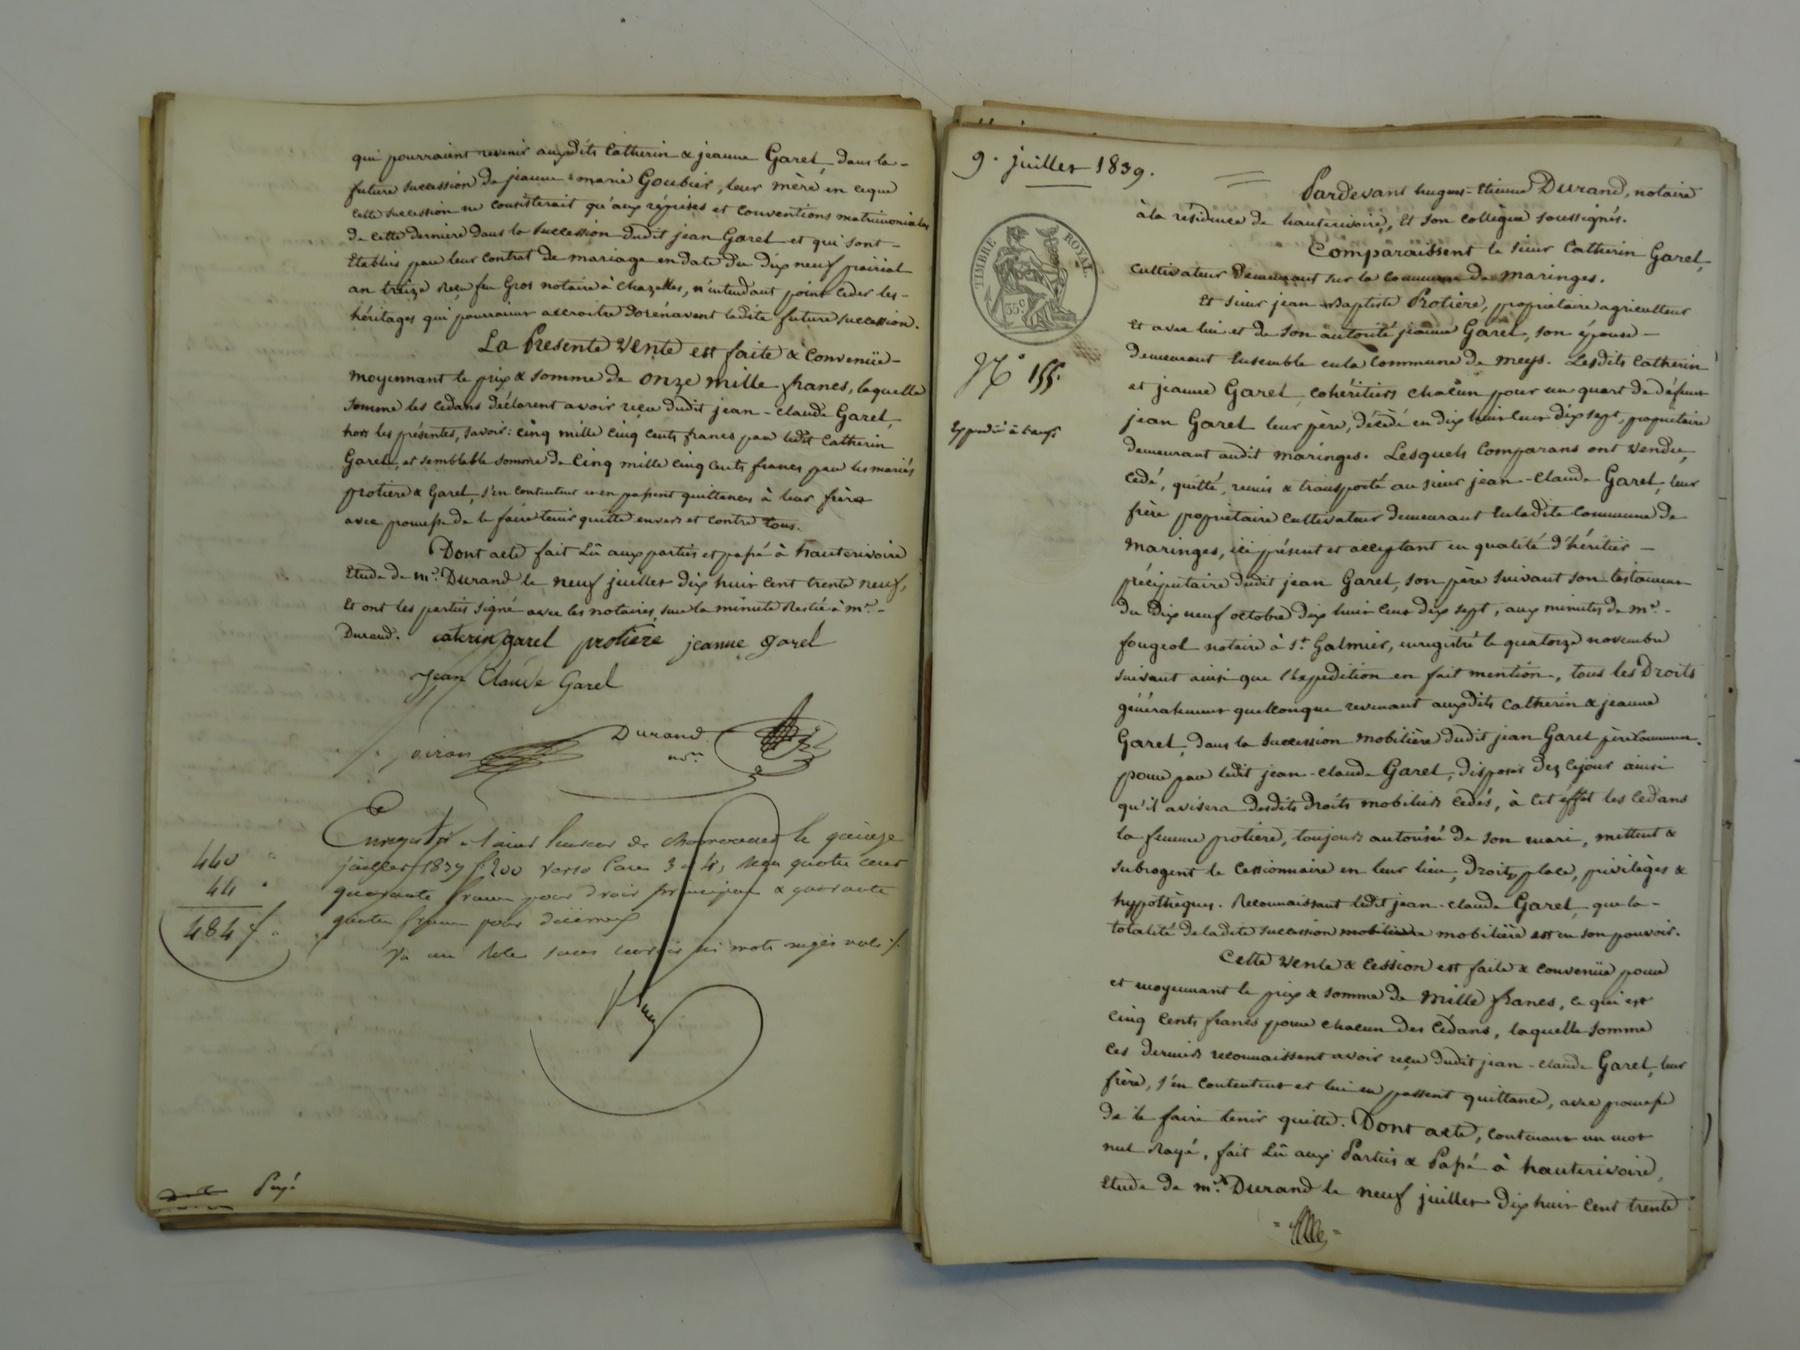 qui pourraient revenir auxdits Catherin & jeanne Garel dans la
future succession de jeanne marie Goubier, leur mère en ceque
cette succession ne consisterait qu'aux réprises et conventions matrimoniales
de cette dernière dans la succession dudit jean Garel et qui sont
Etablis par leur contrat de mariage en date du dix neuf prairial
an treize reçu feu Gros notaire à Chazelles, n'entendant point ceder les
héritages qui pourraient accroitre dorénavent ladite future succession.
La Presente vente est faite & convenüe
moyennant le prix & somme de onze mille francs, laquelle
somme les cedans déclarent avoir reçue dudit jean-claude Garel,
hors les présentes, savoir: cinq mille cinq cents francs par ledit Catherin
Garel, et semblable somme de Cinq mille cinq cents francs par les mariés
protiere & Garel, s'en contentent et en passent quittances à leur frère
avec promesse de le faire tenir quitte envers et contre tous.
Dont acte fait Lû aux parties et passé à hauterivoire
Etude de me. Durand le neuf juillet dix huit cent trente neuf,
Et ont les parties signé avec les notaires, sur la minute Restée à me.
Durand. caterin garel protiere jeanne garel
Jean Claude Garel
Durand
poiron nre.
Enregistré à Saint le quinze
440
juillet 1839 f. 200 verso Case 3 et 4, reçu quatre cent
44
quarante francs pour droit principal & quarante
484 f
quatre francs pour décimes
Payé
9. juillet 1839.
Pardevant hugues-Etienne Durand, notaire
à la résidence de hauterivoire, Et son collègue soussignés.
TIMBRE ROYAL
35 c
Comparaissent le sieur Catherin Garel,
cultivateur Demeurant sur la Commune de Maringes.
Et sieur jean Baptiste Protière, propriétaire agriculteur
Et avec lui et de son autorité jeanne Garel, son épouse
demeurant Ensemble en la Commune de meys. Lesdits Catherin
N° 155.
et jeanne Garel cohéritiers chacun pour un quart de défunt
jean Garel leur père, décédé en dix huit cent dix sept, propriétaire
demeurant audit maringes. Lesquels Comparans ont vendu,
cedé, quitté, remis & transporté au sieur jean-Claude Garel, leur
frère propriétaire cultivateur demeurant En ladite Commune de
Maringes, ici présent et acceptant en qualité d'héritier
précipuitaire dudit jean Garel, son père suivant son testament
du Dix neuf octobre dix huit cent dix sept, aux minutes de me.
fougerol notaire à St. Galmier, enregistré le quatorze novembre
suivant ainsi que l'Expedition en fait mention, tous les Droits
généralement quelconque revenant auxdits Catherin & jeanne
Garel, dans la succession mobilière dudit jean Garel père commun.
pour par ledit jean-claude Garel, disposer dez cejour ainsi
qu'il avisera desdits droits mobiliers cedés, à cet effet les cedans
la femme protière, toujours autorisée de son mari, mettent &
subrogent le cessionnaire en leur lieu, droits, place, privilèges &
hypothèques. Reconnaissant ledit jean-claude Garel, que la
totalité de ladite succession mobilière mobilière est en son pouvoir.
Cette vente & cession est faite & convenüe pour
et moyennant le prix & somme de mille francs, ce qui est
cinq Cents francs pour chacun des cédans, laquelle somme
ces derniers reconnaissent avoir reçu dudit jean-claude Garel, leur
frère, s'en contentent et lui en passent quittance, avec promesse
de le faire tenir quitte. Dont acte, contenant un mot
nul Rayé, fait Lû aux Parties & Passé à hauterivoire,
Etude de me. Durand le neuf juillet dix huit cent trente